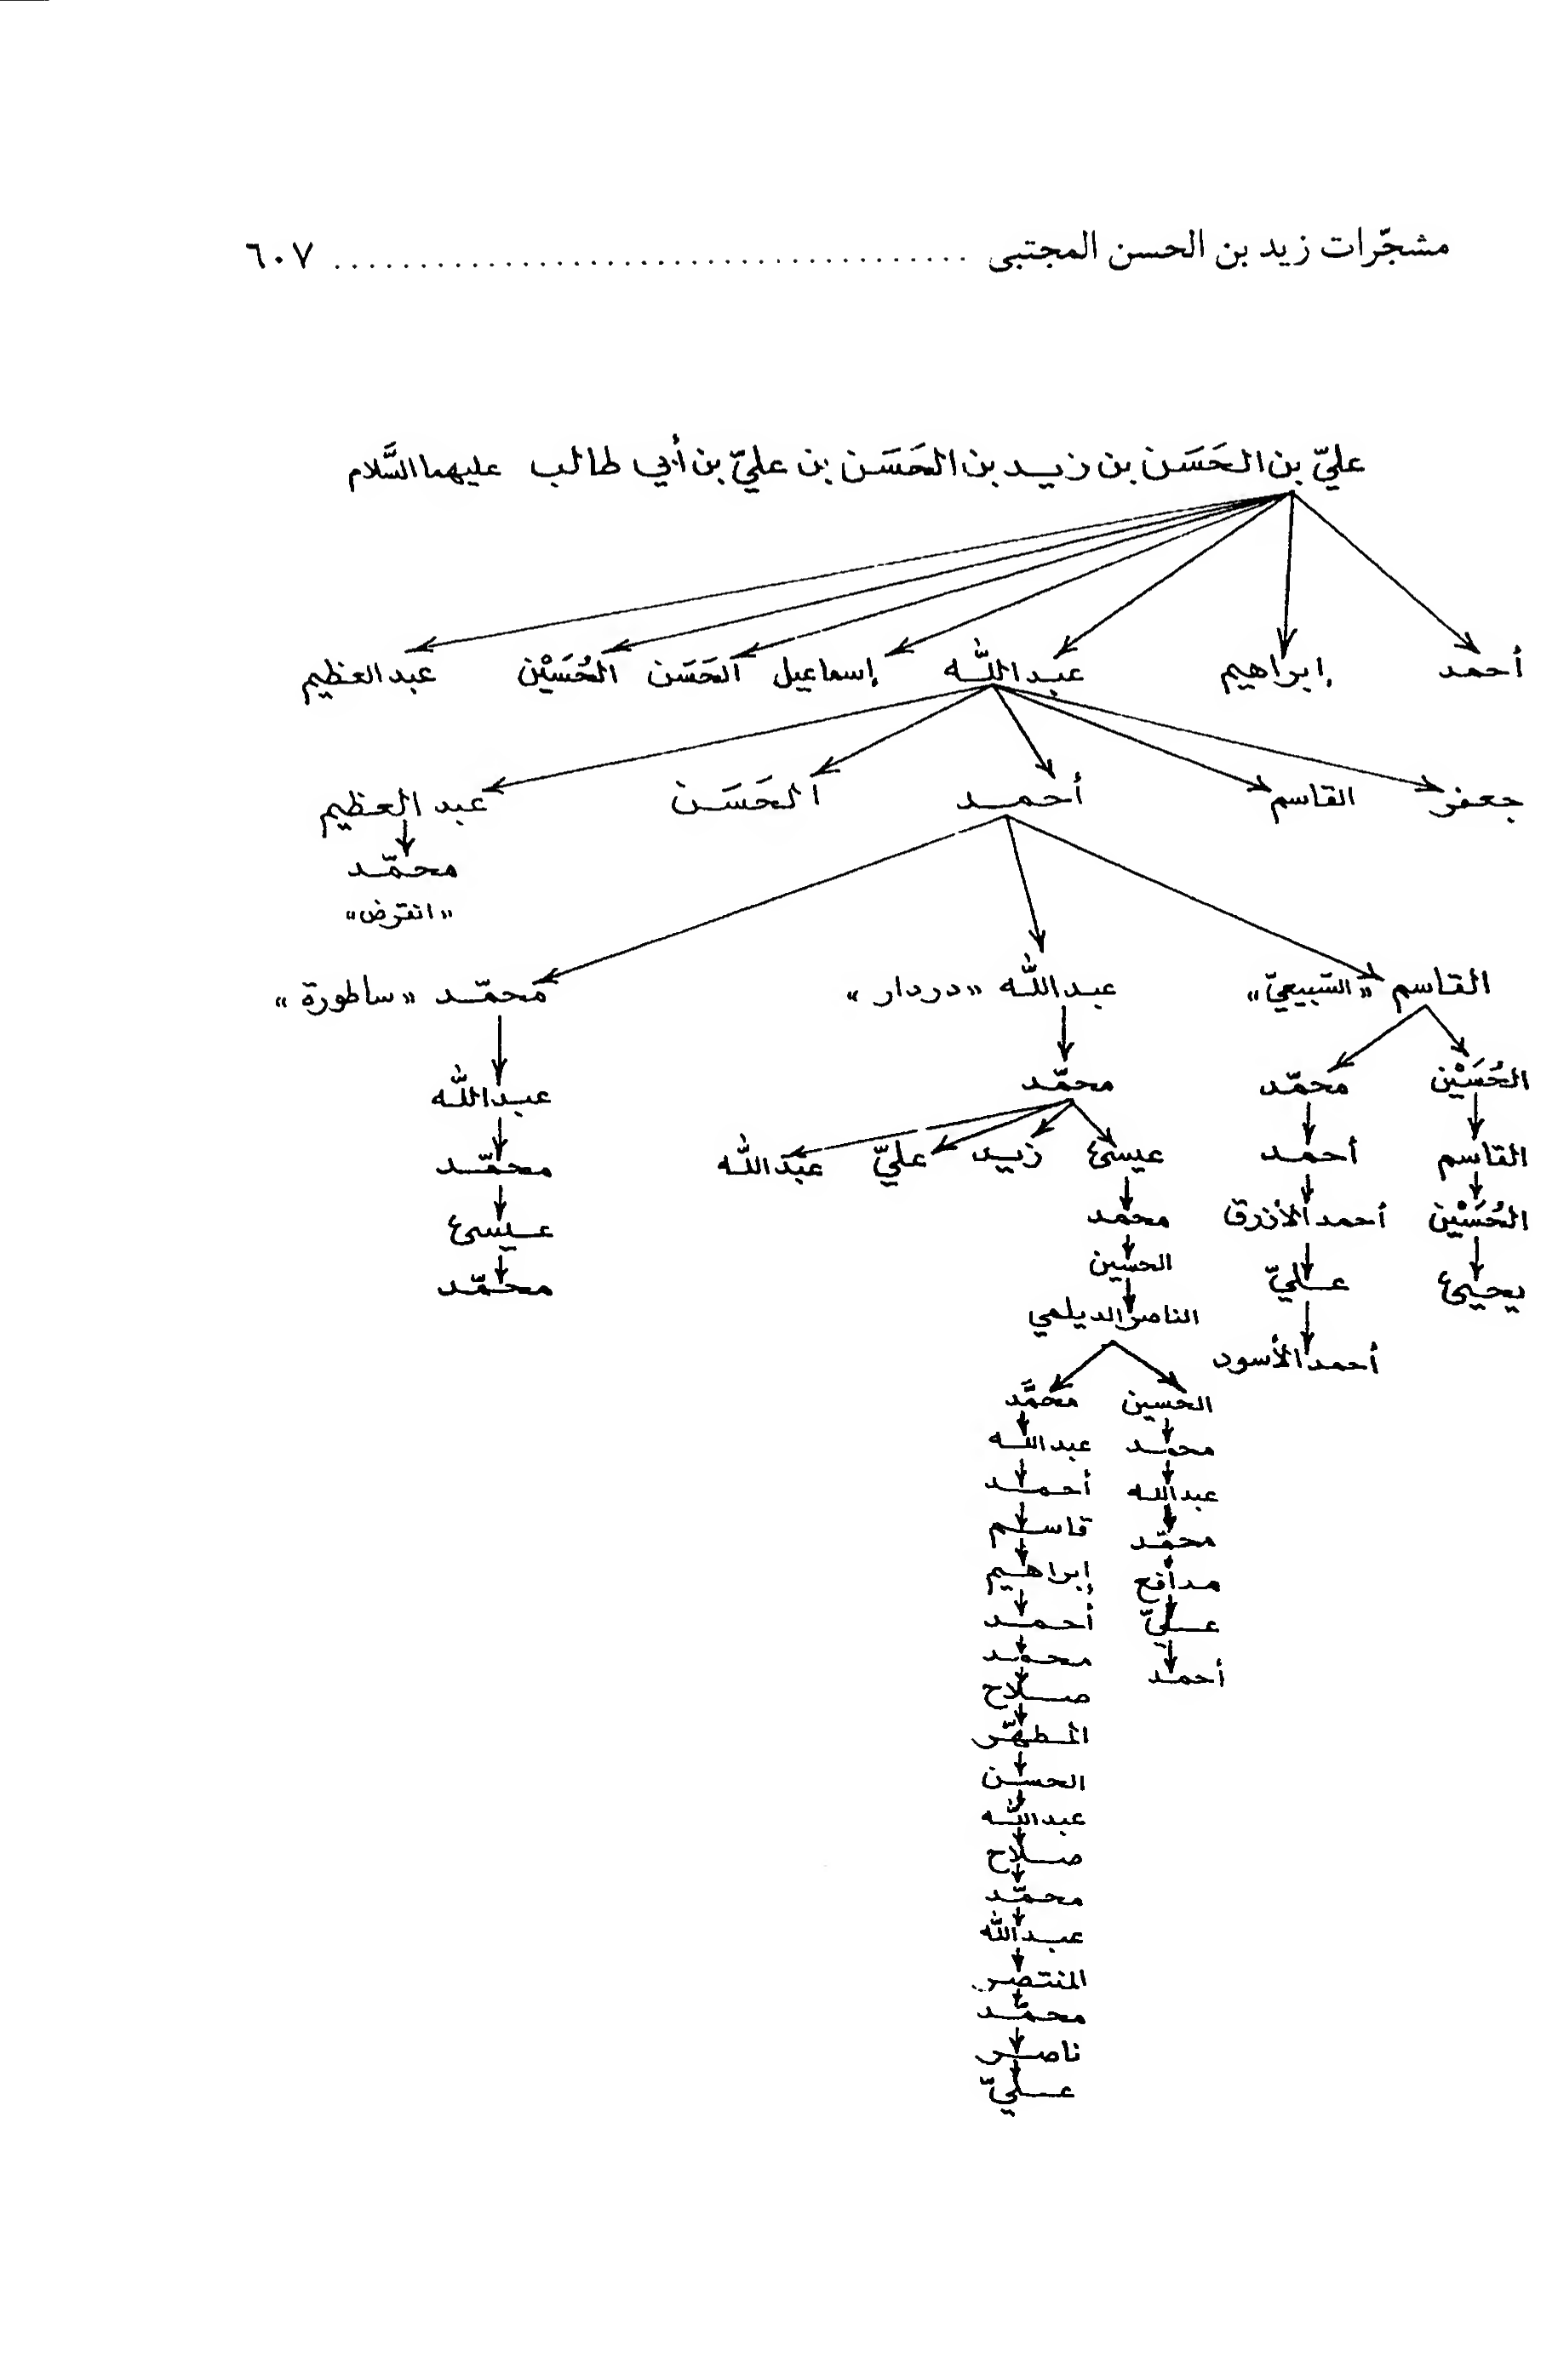 مشجّرات زيد بن الحسن المجتبى ..................................... ٦٠٧
عليّ بن الحَسَن بن زيد بن الحَسَن بن عليّ بن أبي طالب عليهما السَّلام
أحمد إبراهيم عبدالله إسماعيل الحَسَن الحُسَيْن عبدالعظيم
جعفر القاسم أحمد الحَسَن عبد العظيم
محمّد
«انقرض»
القاسم «السّبيعيّ» عبدالله «دردار» محمّد «ساطورة»
الحُسَيْن محمّد محمّد عبدالله
القاسم أحمد عيسى زيد عليّ عبدالله محمّد
الحُسَيْن أحمد الأزرق محمد عيسى
الحسين
يحيى عليّ محمّد
الناصر الديلمي
أحمد الأسود
الحسين محمَّد
محمد عبدالله
عبدالله أحمد
محمّد قاسم
مدافع إبراهيم
عليّ أحمد
محمد
أحمد صلاح
المطهّر
الحسن
عبدالله
صلاح
محمّد
عبدالله
المنتصر
محمّد
ناصر
عليّ